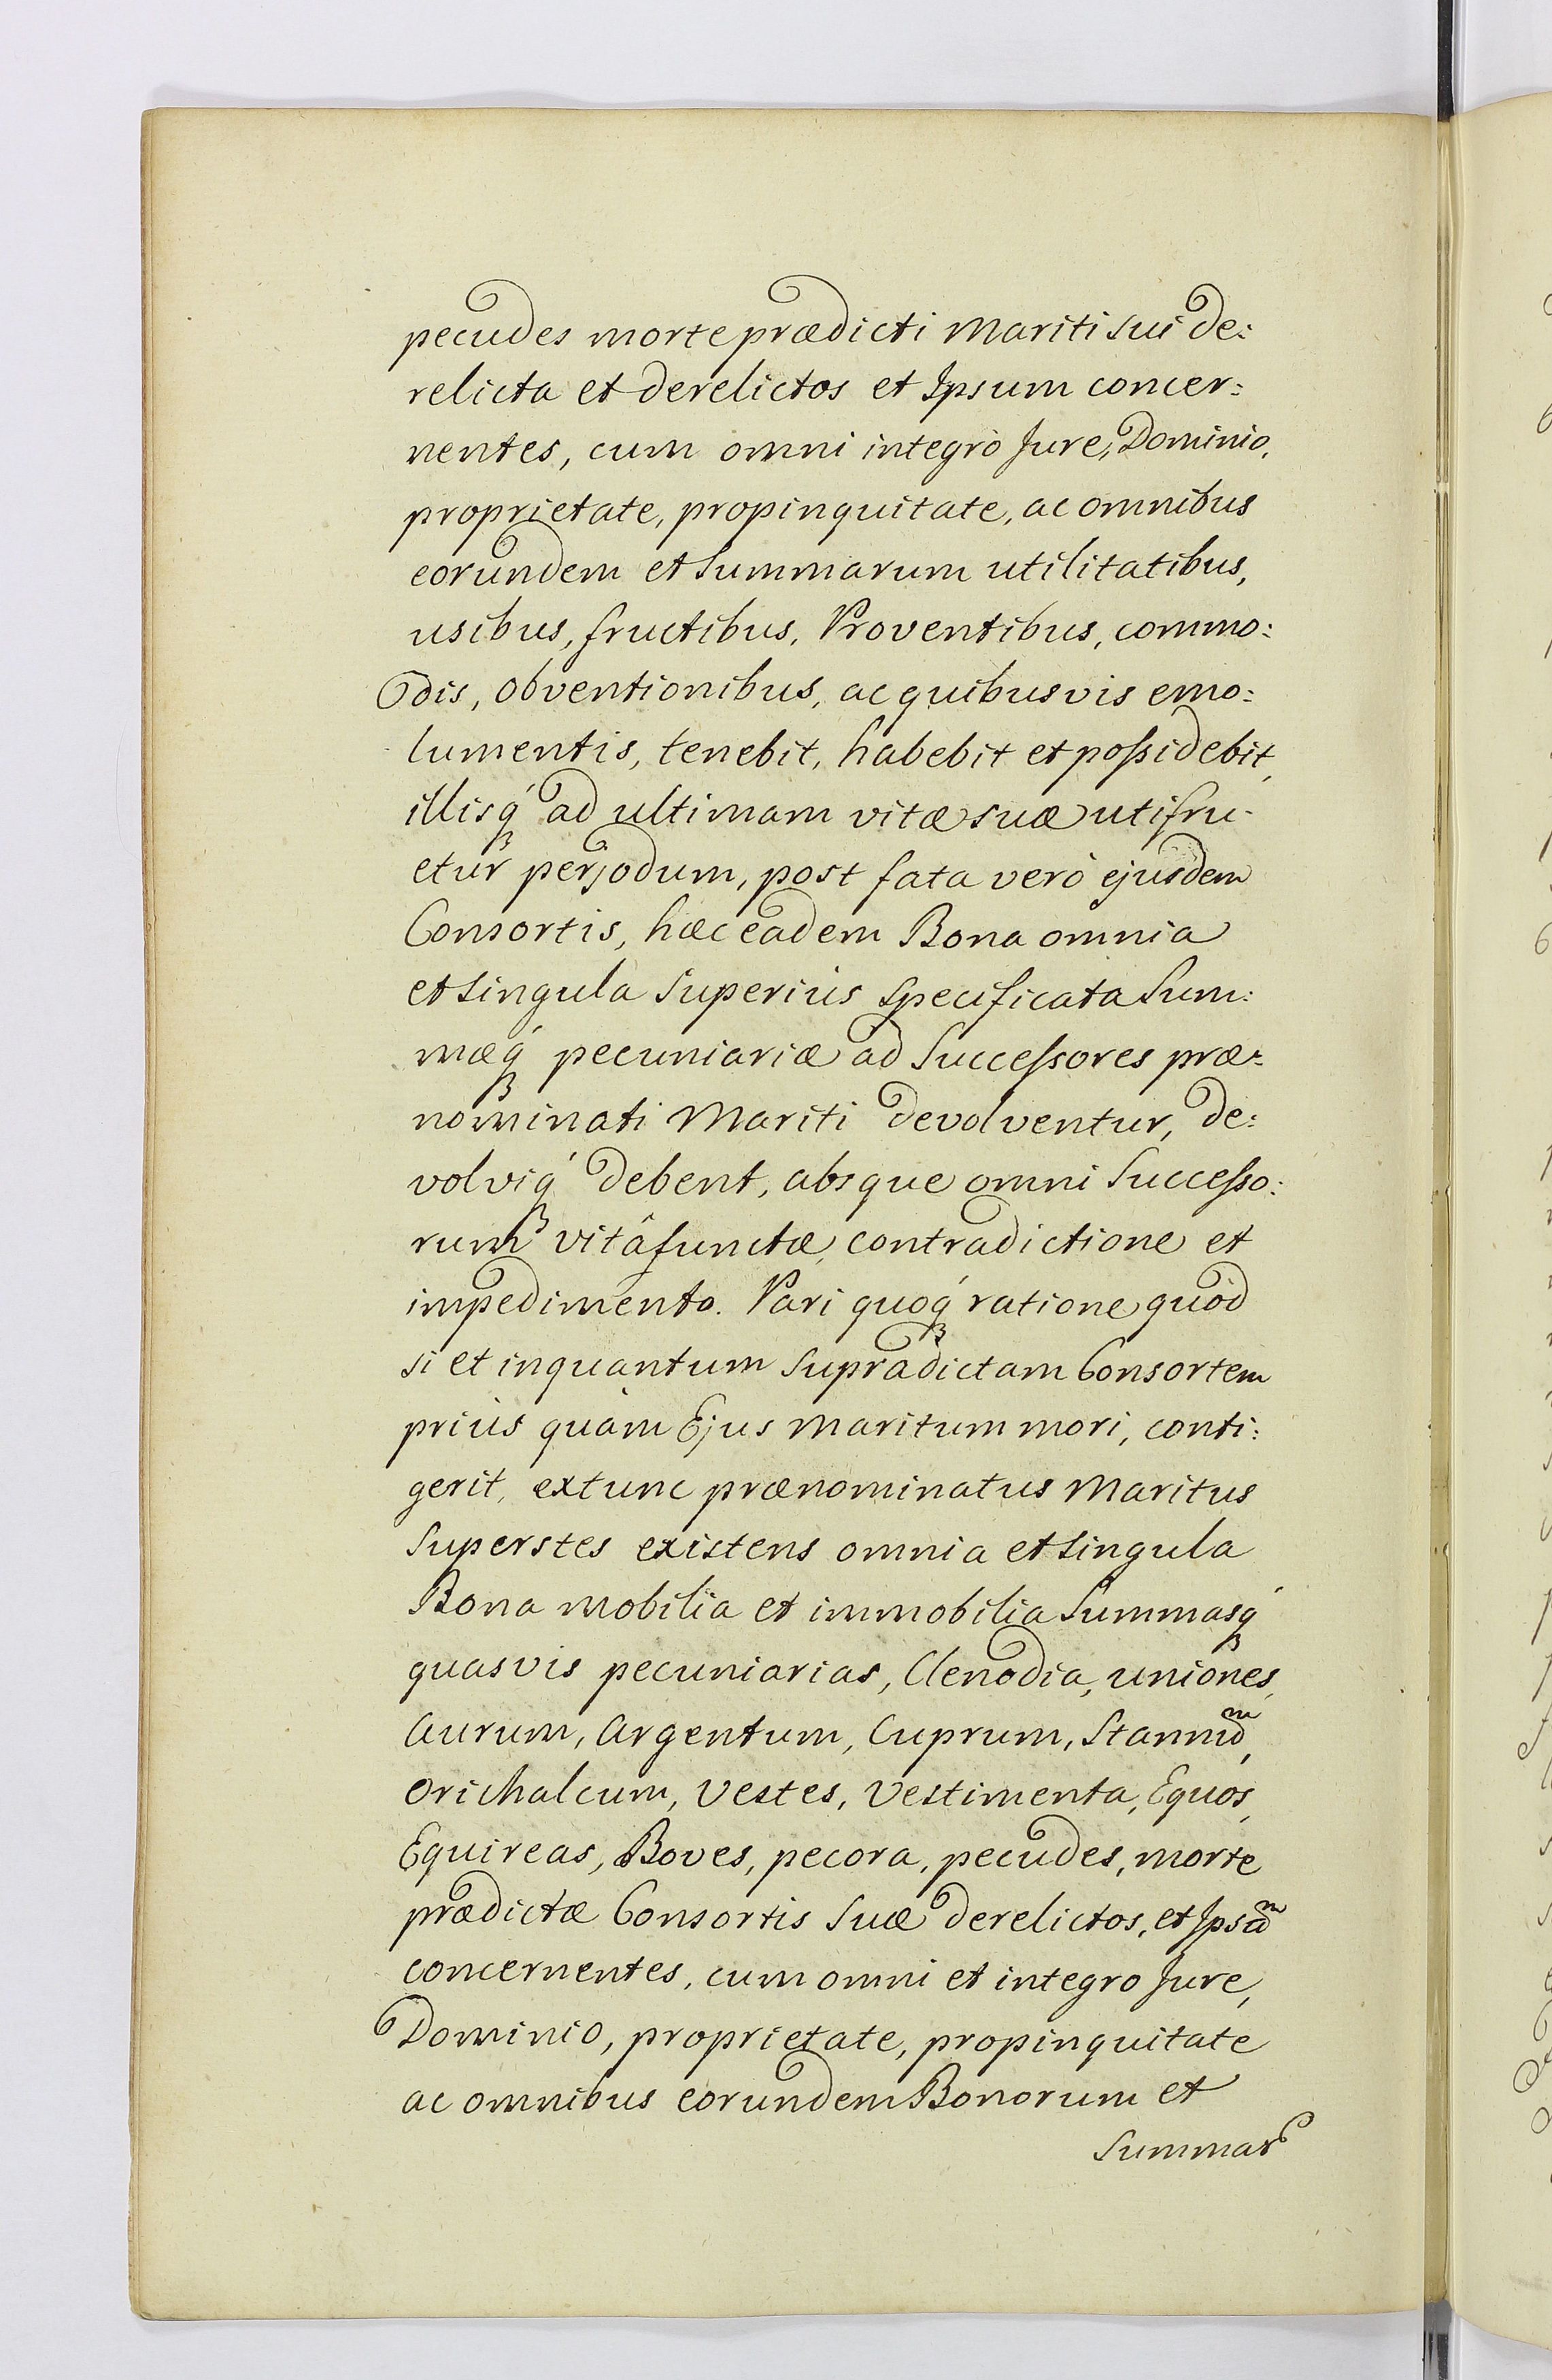 pecudes morte prædicti Mariti sui de:
relicta et derelictos et Ipsum concer:
nentes, cum omni integrò Jure, Dominio,
proprietate, propinquitate, ac omnibus
eorundem et Summarum utilitatibus,
usibus, fructibus, Proventibus, commo:
dis, obventionibus, ac quibusvis emo:
lumentis, tenebit, habebit et possidebit,
illisq́ꝫ ad ultimam vitæ suæ utifru-
etur perjodum, post fata verò ejusdem
Consortis, hæc eadem Bona omnia
et Singula Superiùs Specificata Sum:
mæq́ꝫ pecuniariæ ad Successores præ:
nominati Mariti devolventur, de:
volviq́ꝫ debent, absque omni Successo:
rum vitâ functæ, contradictione et
impedimento. Pari quoq́ꝫ ratione quòd
si et inquantum supradictam Consortem
priùs quàm Ejus Maritum mori, conti:
gerit, extunc prænominatus Maritus
Superstes existens omnia et Singula
Bona mobilia et immobilia Summasq́ꝫ
quasvis pecuniarias, Clenodia, uniones,
Aurum, Argentum, Cuprum, Stannuᵐ,
Orichalcum, Vestes, Vestimenta, Equos,
Equireas, Boves, pecora, pecudes, morte
prædictæ Consortis Suæ derelictos, et Ipsaᵐ
concernentes, cum omni et integro Jure,
Dominio, proprietate, propinquitate
ac omnibus eorundem Bonorum et
Summar